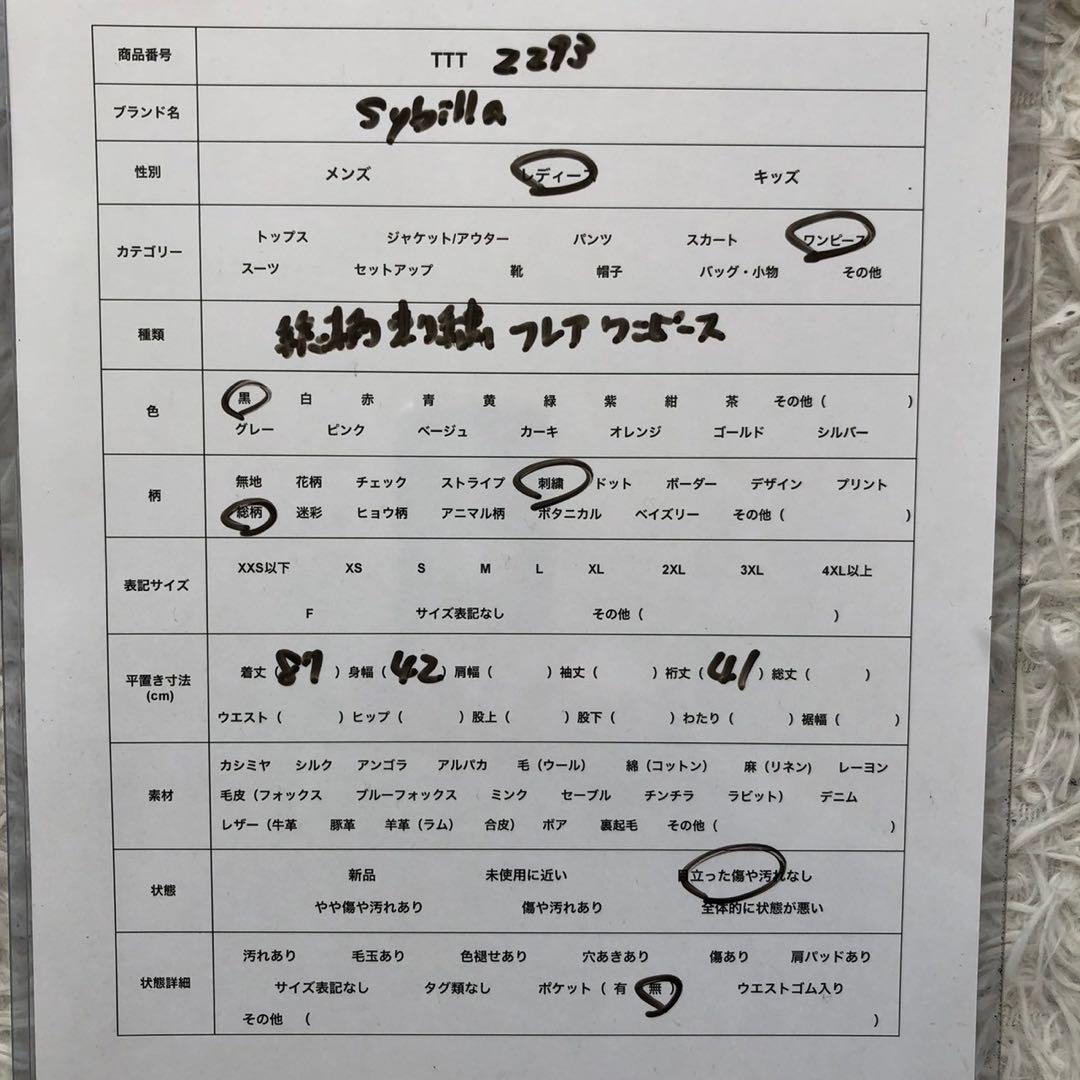 商品番号 TTT 2293
ブランド名 Sybilla
性別 メンズ レディース キッズ
トップス ジャケット/アウター パンツ スカート ワンピース
カテゴリー
スーツ セットアップ 靴 帽子 バッグ・小物 その他
種類 総柄 フレア ワンピース
黒 白 赤 青 黄 緑 紫 紺 茶 その他 ( )
色
グレー ピンク ベージュ カーキ オレンジ ゴールド シルバー
無地 花柄 チェック ストライプ 刺繍 ドット ボーダー デザイン プリント
柄
総柄 迷彩 ヒョウ柄 アニマル柄 ボタニカル ペイズリー その他 ( )
XXS以下 XS S M L XL 2XL 3XL 4XL以上
表記サイズ
F サイズ表記なし その他 ( )
着丈 ( 87 ) 身幅 ( 42 ) 肩幅 ( ) 袖丈 ( ) 裄丈 ( 41 ) 総丈 ( )
平置き寸法
(cm)
ウエスト ( ) ヒップ ( ) 股上 ( ) 股下 ( ) わたり ( ) 裾幅 ( )
カシミヤ シルク アンゴラ アルパカ 毛（ウール） 綿（コットン） 麻（リネン) レーヨン
素材
毛皮（フォックス ブルーフォックス ミンク セーブル チンチラ ラビット） デニム
レザー（牛革 豚革 羊革（ラム） 合皮） ボア 裏起毛 その他 ( )
新品 未使用に近い 目立った傷や汚れなし
状態
やや傷や汚れあり 傷や汚れあり 全体的に状態が悪い
汚れあり 毛玉あり 色褪せあり 穴あきあり 傷あり 肩パッドあり
状態詳細
サイズ表記なし タグ類なし ポケット ( 有 無 ) ウエストゴム入り
その他 ( )